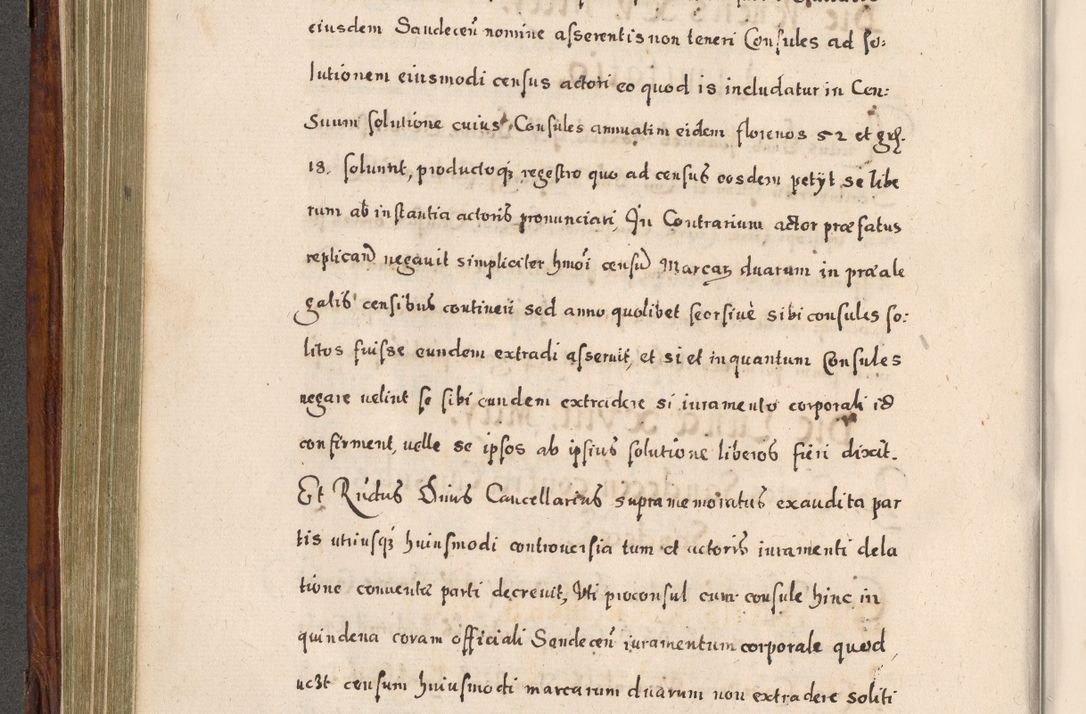 eiusdem Sandeceń nomine asserentis non teneri Consules ad so:
lutionem eiusmodi census actori eo quod is includatur in Cen:
Suum solutione cuius Consules annuatim eidem florenos 52 et grß.
18. soluunt, productoqȝ regestro quo ad census eosdem petÿt se libe
rum ab instantia actoris pronunciari, In Contrarium actor præfatus
replicań negauit simpliciter hmoi̇ censuṅ Marcaꝝ duarum in præale
gatis censibus contineri sed anno quolibet seorsiuè sibi consules so:
litos fuisse eundem extradi asseruit, et si et in quantum Consules
negare uelint se sibi eundem extradere si iuramento corporali id
confirment, uelle se ipsos ab ipsius solutione liberos fieri dixit.
Et Rńdus Dnius Cancellarius supramemoratus exaudita par
tis utriusqȝ huiusmodi controuersia tum et actoris iuramenti dela
tione conuentæ parti decreuit, Vti proconsul cum consule hinc in
quindena coram officiali Sandeceń iuramentum corporale quod
uczt censum huiusmodi marcarum duarum non extradere soliti